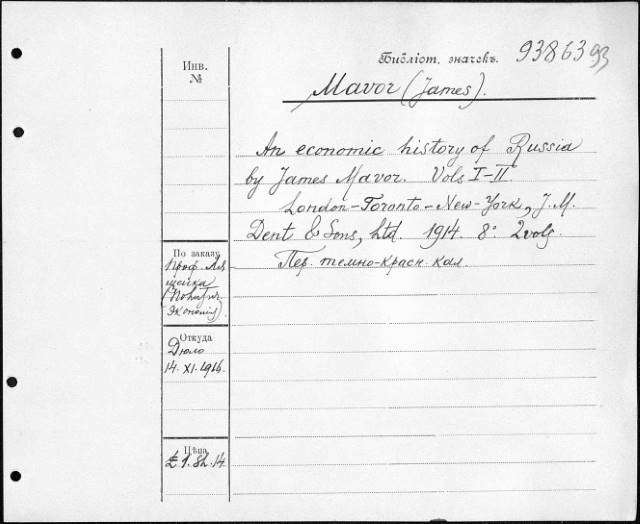 Библіот. значекъ. 93863
Mavor (James).
Инв.
№
An economic history of Russia
by James Mavor. Vols I-II.
London-Toronto-New-York, J.M.
Dent & Sons, Ltd. 1914. 8° 2 vols.
Пер. темно-красн. кал.
По заказу
Проф.
Экономія).
Откуда
Дюло
14.XI.1916.
Цѣна
£ 1. Sh. 14